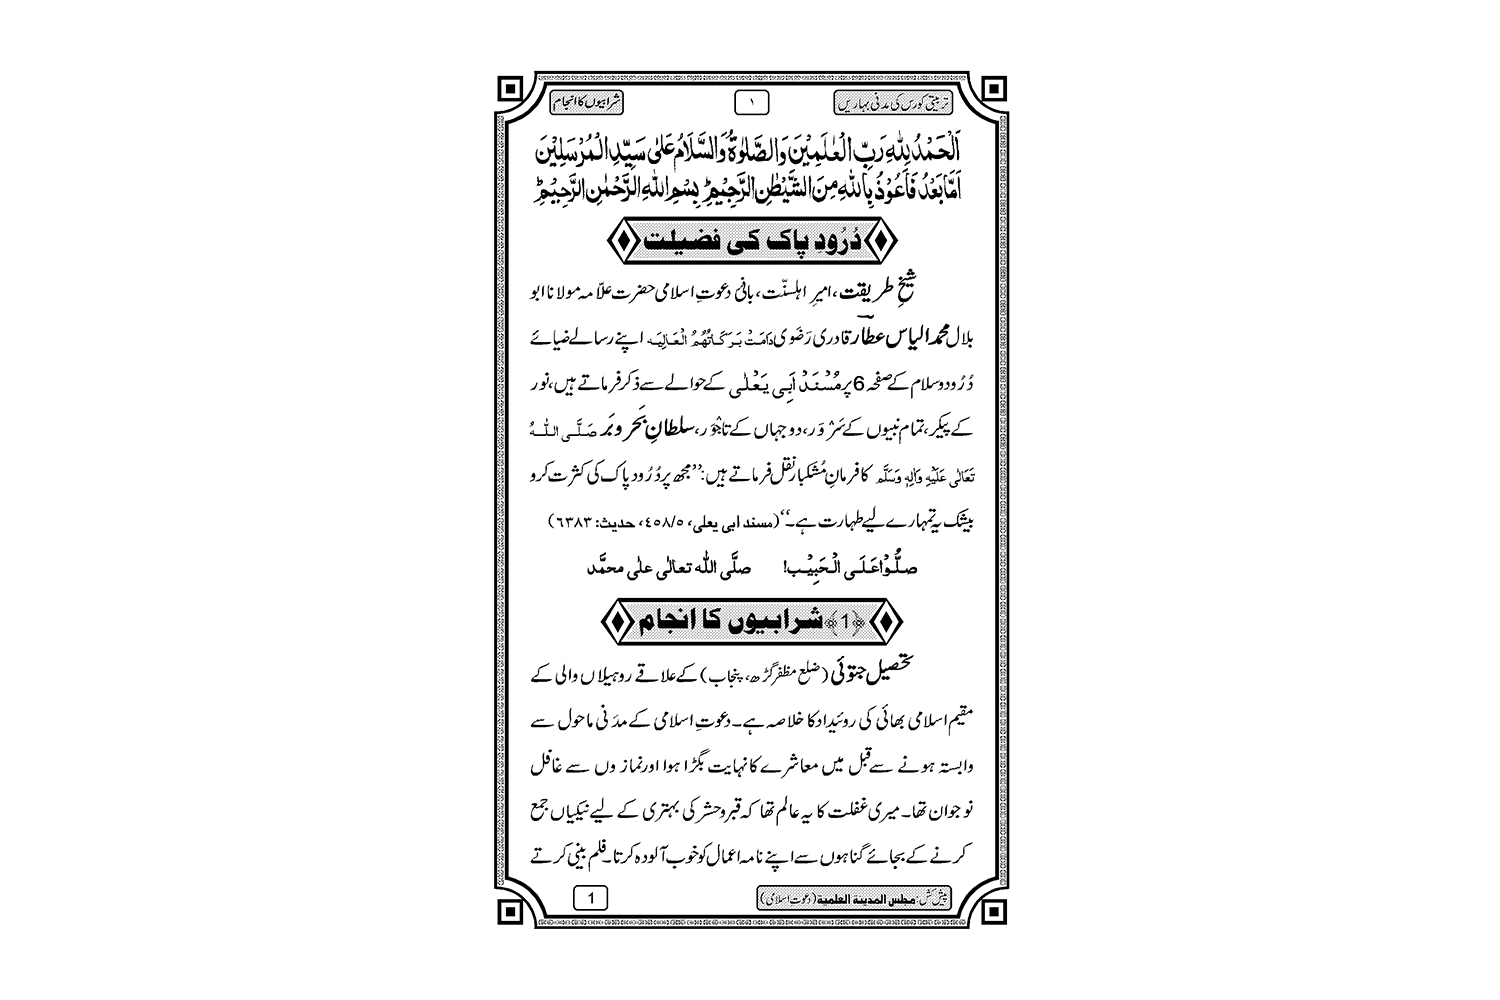 تربیتی کورس کی مدنی بہاریں
۱
شرابیوں کا انجام
اَلْحَمْدُ لِلّٰہِ رَبِّ الْعٰلَمِیْنَ وَالصَّلٰوۃُ وَالسَّلَامُ عَلٰی سَیِّدِ الْمُرْسَلِیْنَ
اَمَّا بَعْدُ فَاَعُوْذُ بِاللّٰہِ مِنَ الشَّیْطٰنِ الرَّجِیْمِ ؕ بِسْمِ اللّٰہِ الرَّحْمٰنِ الرَّحِیْمِ ؕ
دُرُودِ پاک کی فضیلت
شیخِ طریقت، امیرِ اہلسنّت، بانیٔ دعوتِ اسلامی حضرت علّامہ مولانا ابو
بلال محمد الیاس عطار قادری رَضَوی دَامَتْ بَرَکَاتُہُمُ الْعَالِیَہ اپنے رسالے ضیائے
دُرُود و سلام کے صفحہ 6 پر مُسْنَدْ اَبِی یَعْلٰی کے حوالے سے ذکر فرماتے ہیں، نور
کے پیکر، تمام نبیوں کے سَرْوَر، دو جہاں کے تاجْوَر، سلطانِ بَحر و بَر صَلَّی اللہُ
تَعَالٰی عَلَیْہِ وَاٰلِہٖ وَسَلَّم کا فرمانِ مُشکبار نقل فرماتے ہیں: ’’مجھ پر دُرُود پاک کی کثرت کرو
بیشک یہ تمہارے لیے طہارت ہے۔‘‘ (مسند ابی یعلی، ۴۵۸/۵، حدیث: ۶۳۸۳)
صَلُّوْا عَلَی الْحَبِیْب! صلَّی اللّٰہ تعالٰی علٰی محمَّد
﴿1﴾ شرابیوں کا انجام
تحصیل جتوئی (ضلع مظفر گڑھ، پنجاب) کے علاقے روہیلاں والی کے
مقیم اسلامی بھائی کی روئیداد کا خلاصہ ہے۔ دعوتِ اسلامی کے مدَنی ماحول سے
وابستہ ہونے سے قبل میں معاشرے کا نہایت بگڑا ہوا اور نمازوں سے غافل
نوجوان تھا۔ میری غفلت کا یہ عالم تھا کہ قبر و حشر کی بہتری کے لیے نیکیاں جمع
کرنے کے بجائے گناہوں سے اپنے نامہ اعمال کو خوب آلودہ کرتا۔ فلم بینی کرتے
پیش کش: مجلس المدینۃ العلمیۃ (دعوتِ اسلامی)
1